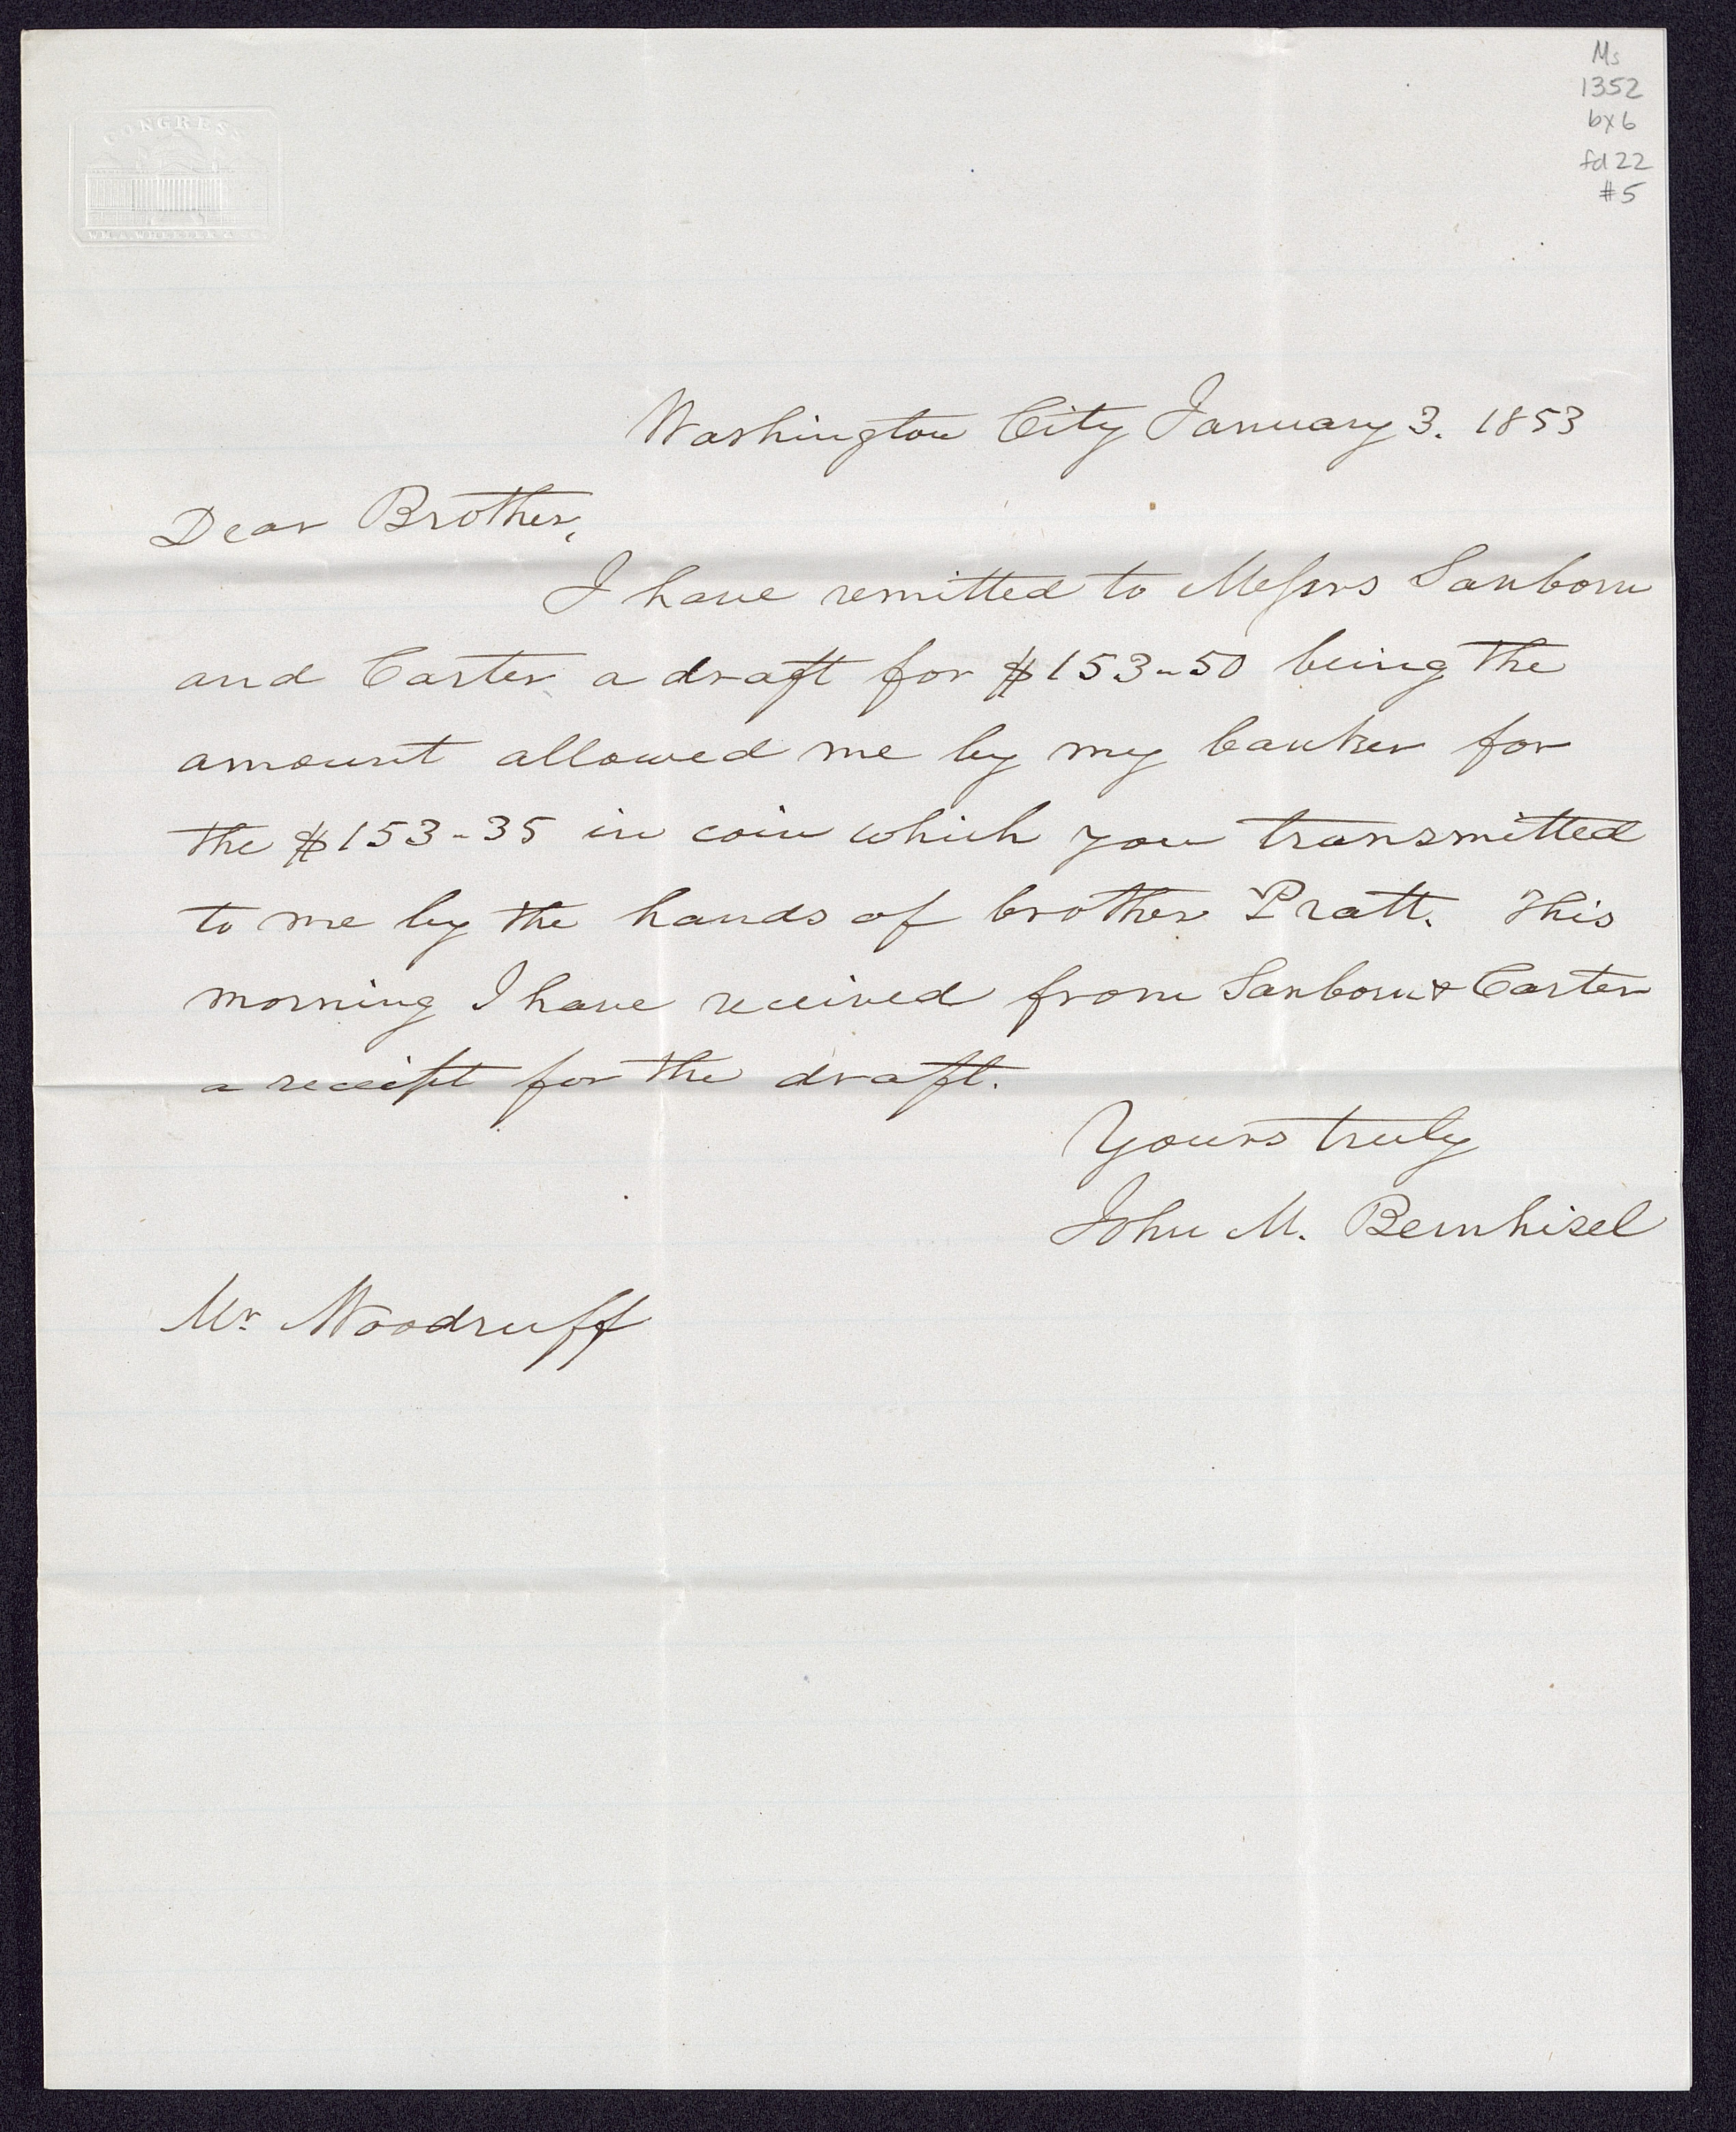 Ms
1352
bx6
fd 22
#5
CONGRESS
Washington City January 3. 1853
Dear Brother,
I have remitted to Messrs Sanborn
and Carter a draft for $153-50 being the
amount allowed me by my banker for
the $153-35 in coin which you transmitted
to me by the hands of brother Pratt. This
morning I have received from Sanborn & Carter
a receipt for the draft.
Yours truly
John M. Bernhisel
Mr Woodruff